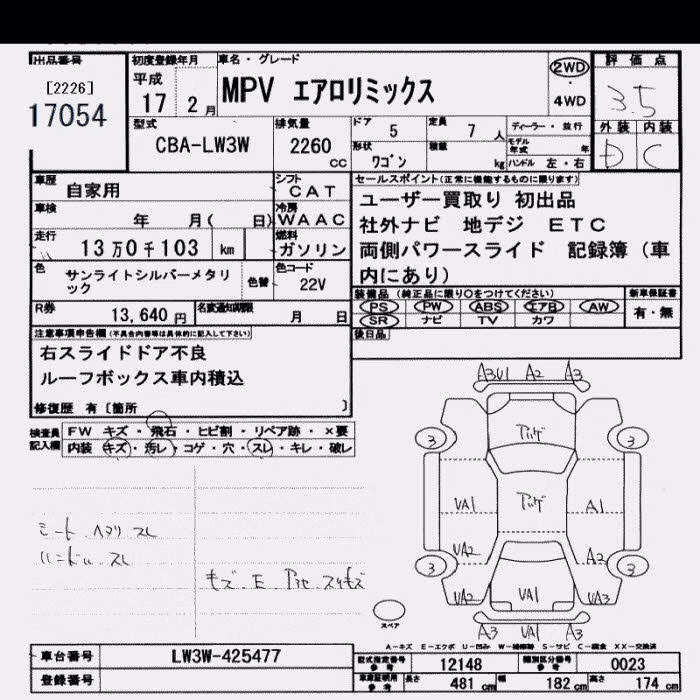 出品番号
[2226]
17054
初度登録年月
平成
17 2 月
車名・グレード
MPV エアロリミックス
2WD
・
4WD
評価点
3.5
外装 内装
D C
型式
CBA-LW3W
排気量
2260
cc
ドア 5
定員 7 人
形状
ワゴン
積載
kg
ディーラー・並行
モデル年式 年
ハンドル 左・右
車歴
自家用
シフト
CAT
車検
年 月( 日)
冷房
WAAC
走行
13万0千103 km
燃料
ガソリン
色
サンライトシルバーメタリック
色替
色コード
22V
R券
13,640 円
名変通知期限
月 日
セールスポイント(正常に機能するものに限ります)
ユーザー買取り 初出品
社外ナビ 地デジ ETC
両側パワースライド 記録簿(車
内にあり)
装備品(純正品に限り○をつけてください)
PS PW ABS エアB AW
SR ナビ TV カワ
新車保証書
有・無
後日品
注意事項申告欄(不具合内容等は具体的に記入して下さい)
右スライドドア不良
ルーフボックス車内積込
修復歴 有〔箇所 〕
検査員
記入欄
FW キズ・飛石・ヒビ割・リペア跡・×要
内装 キズ・汚レ・コゲ・穴・スレ・キレ・破レ
シート ヘタリ スレ
ハンドル スレ
キズ E
A3U1 A2 A3
3 3
VA1 A1
VA2 A2
3 3
VA2 VA1 VA3
A3 VA1 A3
スペア
A-キズ E-エクボ U-凹み W-補修跡 S-サビ C-腐食 XX-交換済
車台番号 LW3W-425477
登録番号
型式指定番号
参考
12148
類別区分番号
参考
0023
車庫証明用
参考
長さ 481 cm
幅 182 cm
高さ 174 cm